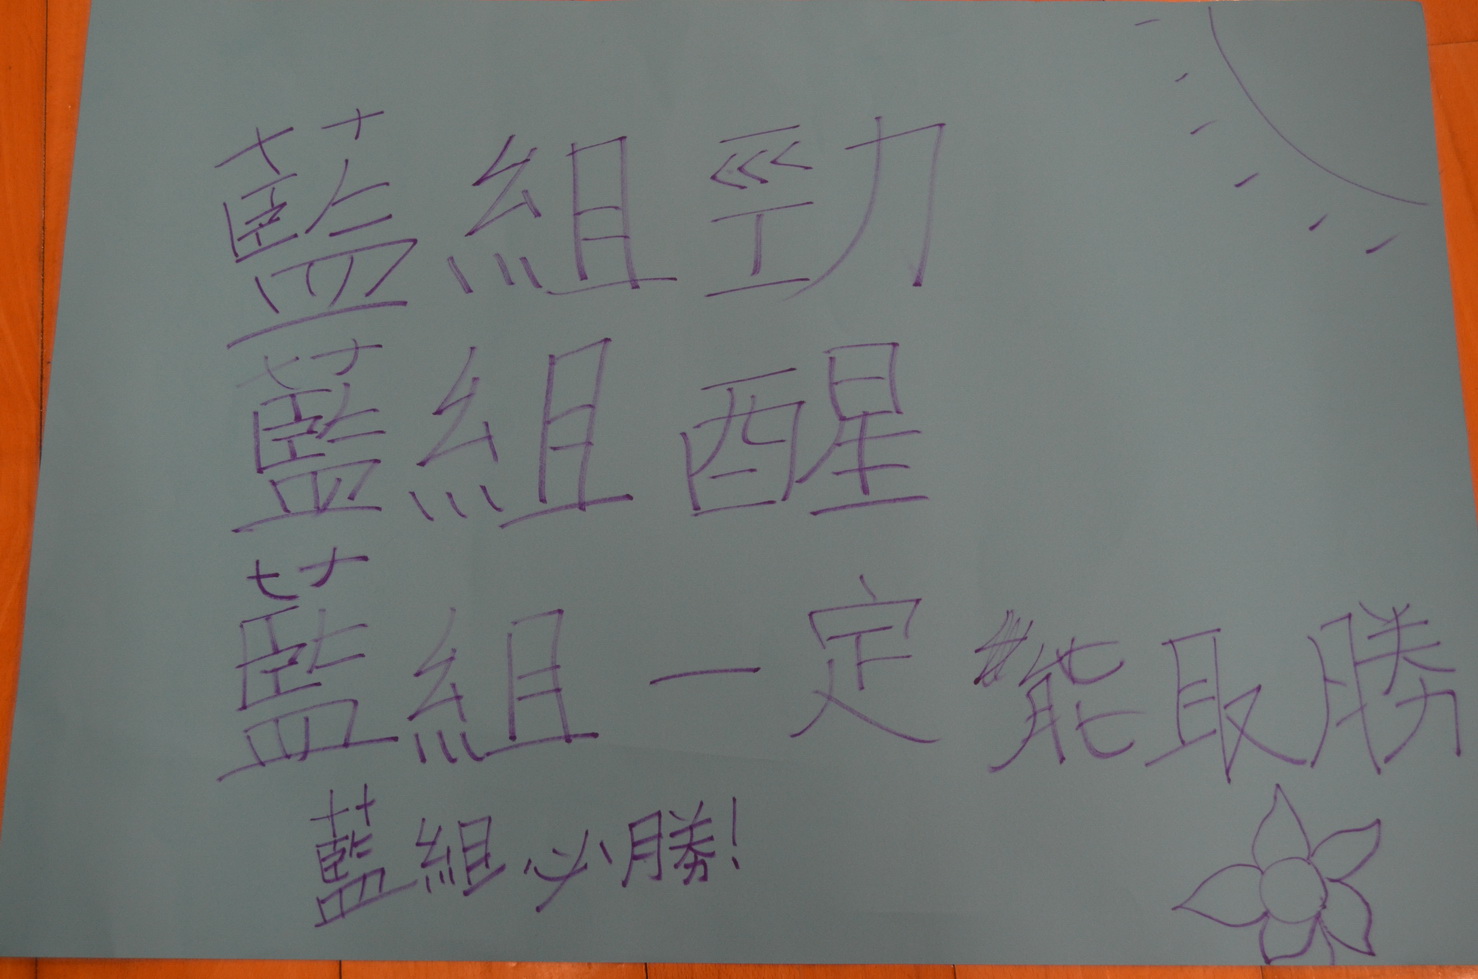 藍組勁
藍組醒
藍組一定能取勝
藍組必勝！